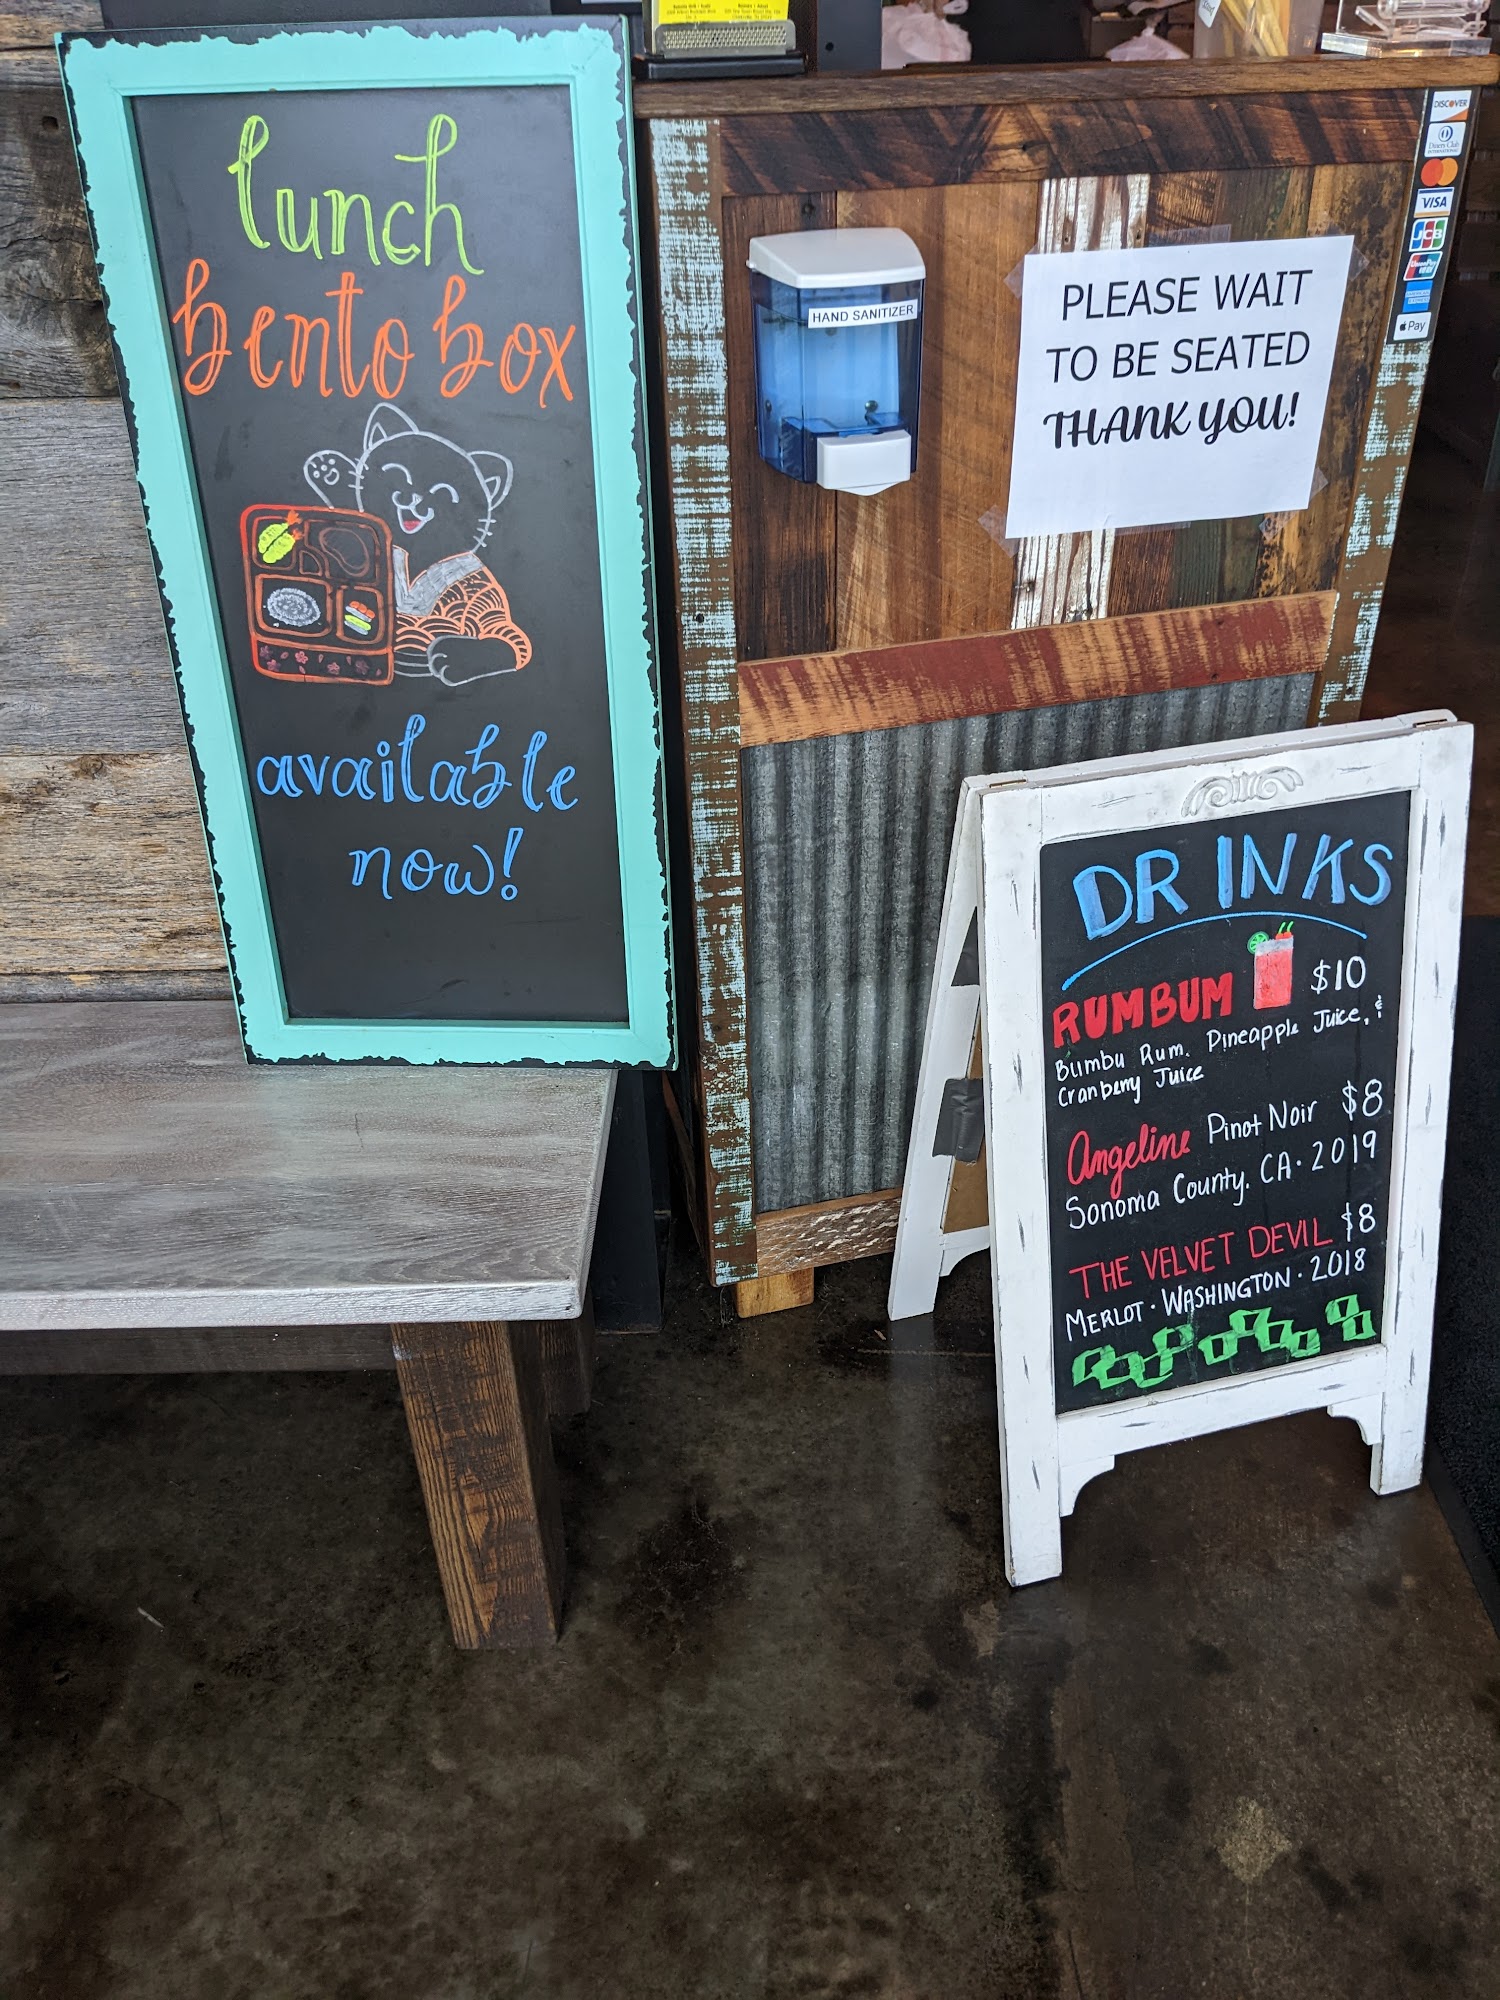 lunch
bento box
available
now!
HAND SANITIZER
PLEASE WAIT
TO BE SEATED
THANK YOU!
DISCOVER
Diners Club
INTERNATIONAL
VISA
JCB
UnionPay
AMERICAN
EXPRESS
Pay
DRINKS
RUMBUM $10
Bumbu Rum. Pineapple Juice, &
Cranberry Juice
Angeline Pinot Noir $8
Sonoma County, CA • 2019
THE VELVET DEVIL $8
MERLOT • WASHINGTON • 2018